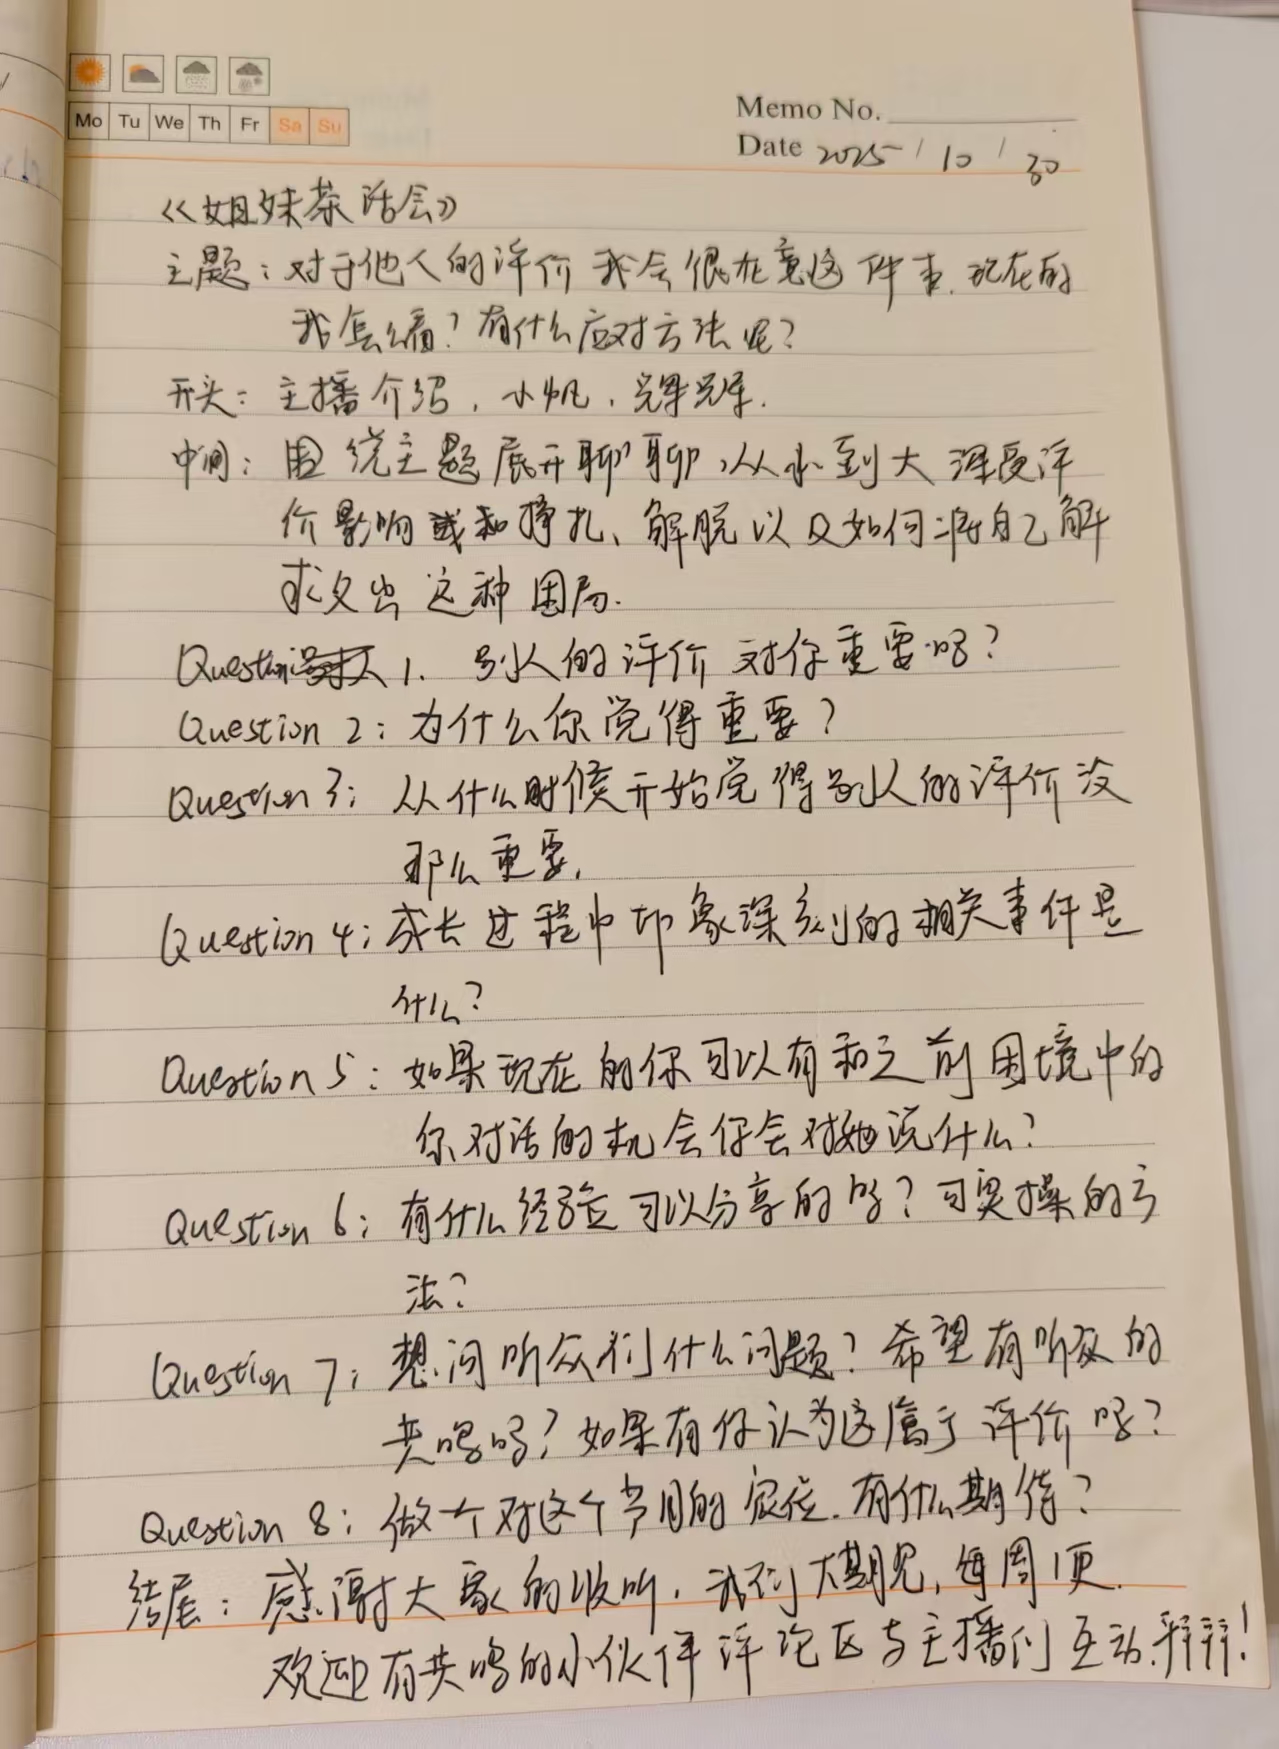 Mo Tu We Th Fr Sa Su
Memo No.
Date 2025 / 10 / 30
《姐妹茶话会》
主题：对于他人的评价 我会很在意这件事.现在的
我怎么看？有什么应对方法呢？
开头：主播介绍，小帆，
中间：围绕主题展开聊聊，从小到大深受评
价影响或和挣扎、解脱以及如何将自己解
救出这种困局.
Question 1. 别人的评价对你重要吗？
Question 2：为什么你觉得重要？
Question 3：从什么时候开始觉得别人的评价没
那么重要.
Question 4：成长过程中印象深刻的相关事件是
什么？
Question 5：如果现在的你可以有和之前困境中的
你对话的机会你会对她说什么？
Question 6：有什么经验可以分享的吗？可实操的方
法？
Question 7：想问听众们什么问题？希望有听众的
共鸣吗？如果有你认为这属于评价吗？
Question 8：做一个对这个节目的定位.有什么期待？
结尾：感谢大家的收听，我们下期见，每周1更.
欢迎有共鸣的小伙伴评论区与主播们互动